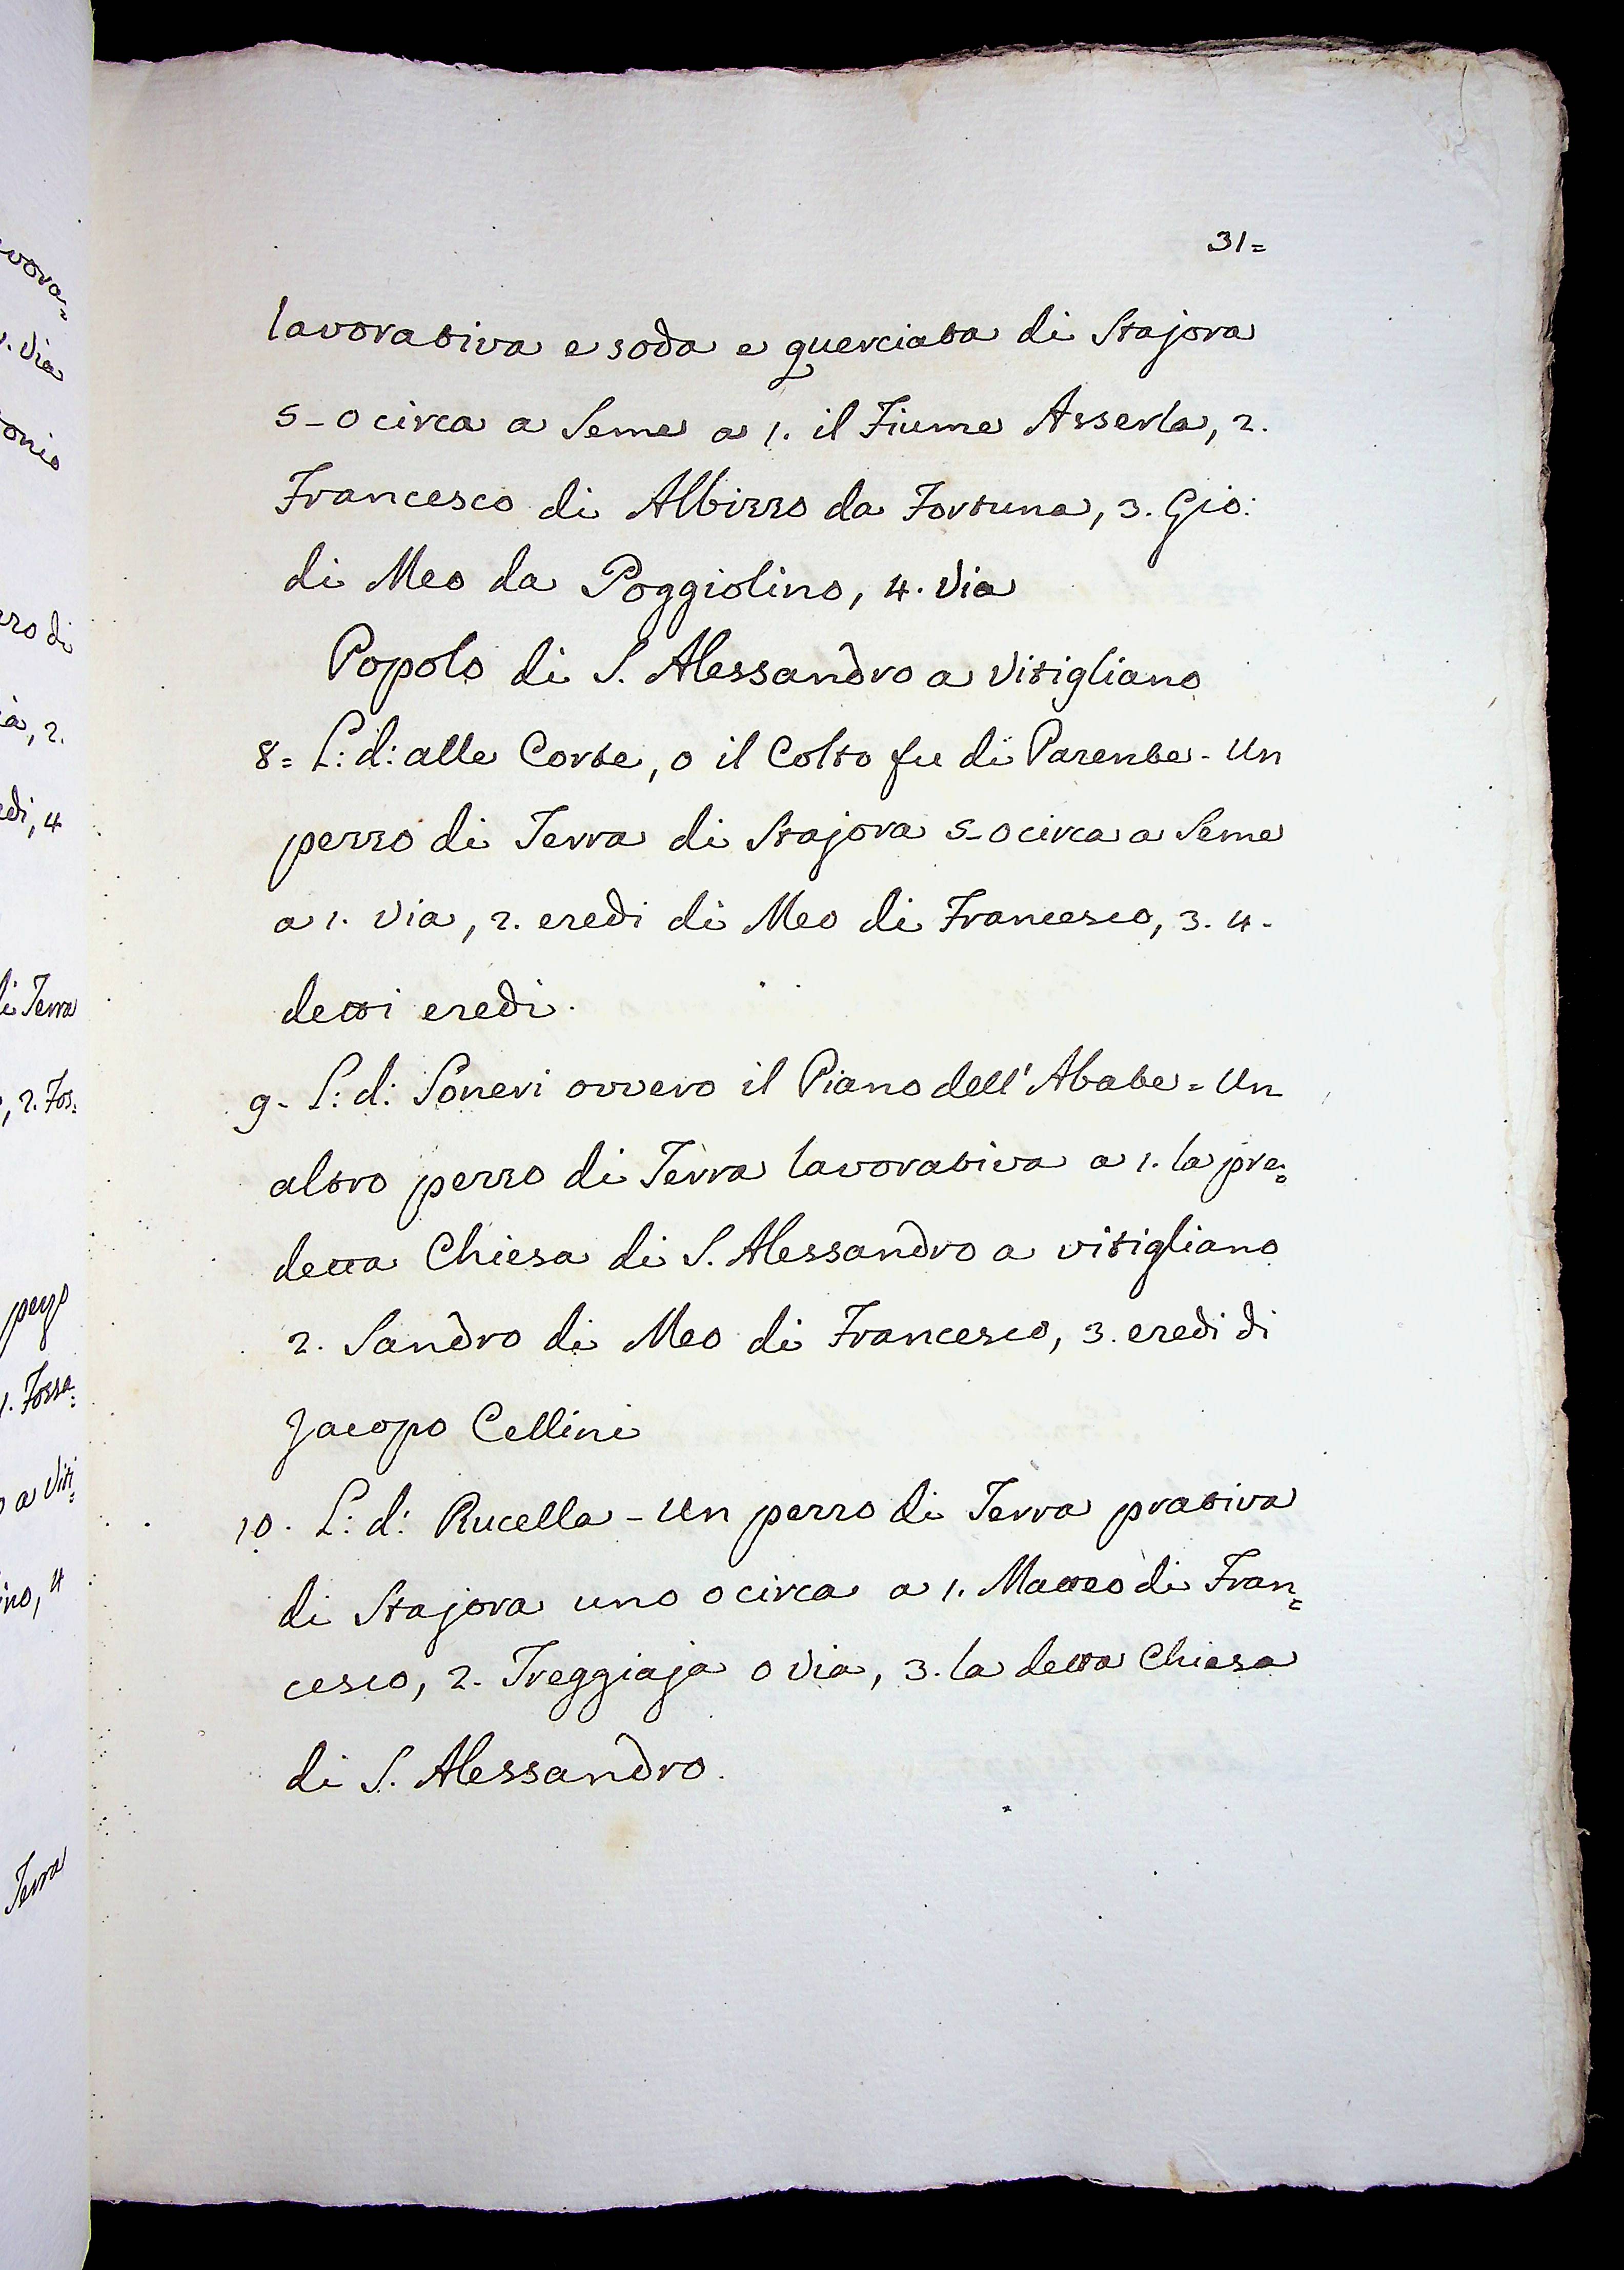 31=
lavorativa e soda e querciata di Stajora
5-o circa a Seme a 1. il Fiume Asserla, 2.
Francesco di Albizzo da Fortuna, 3. Gio:
di Meo da Poggiolino, 4. Via
Popolo di S. Alessandro a Vitigliano
8= L: d: alle Corte, o il Colto fu di Parente - Un
pezzo di Terra di Stajora 5-o circa a Seme
a 1. Via, 2. eredi di Meo di Francesco, 3. 4.
detti eredi.
9- L: d: Soneri ovvero il Piano dell' Abate = Un
altro pezzo di Terra lavorativa a 1. la pre=
detta Chiesa di S. Alessandro a vitigliano
2. Sandro di Meo di Francesco, 3. eredi di
Jacopo Cellini
10. L: d: Rucella - Un pezzo di Terra prativa
di Stajora uno o circa a 1. Matteo di Fran=
cesco, 2. Treggiaja o Via, 3. la detta Chiesa
di S. Alessandro.
vora=
. Via
onio
zzo di
à, 2.
edi, 4
di Terra
, 2. Fos=
pezzo
1. Fossa=
o a Viti=
ino, 4
Terra